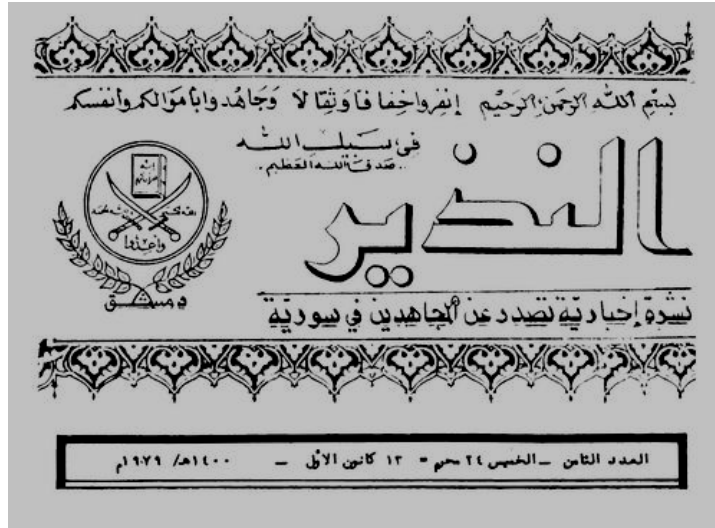 بسم الله الرحمن الرحيم إنفروا خفافا وثقالا وجاهدوا بأموالكم وأنفسكم
في سبيل الله
.. صدق الله العظيم ..
النذير
وأعدوا
دمشق
نشرة إخبارية تصدر عن المجاهدين في سورية
العدد الثامن – الخميس ٢٤ محرم = ١٣ كانون الاول – ١٤٠٠هـ/ ١٩٧٩م